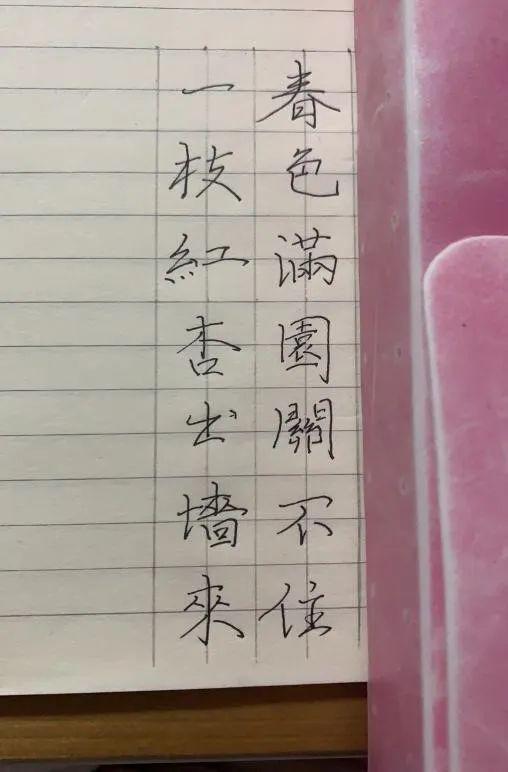 春色滿園關不住
一枝紅杏出墻來